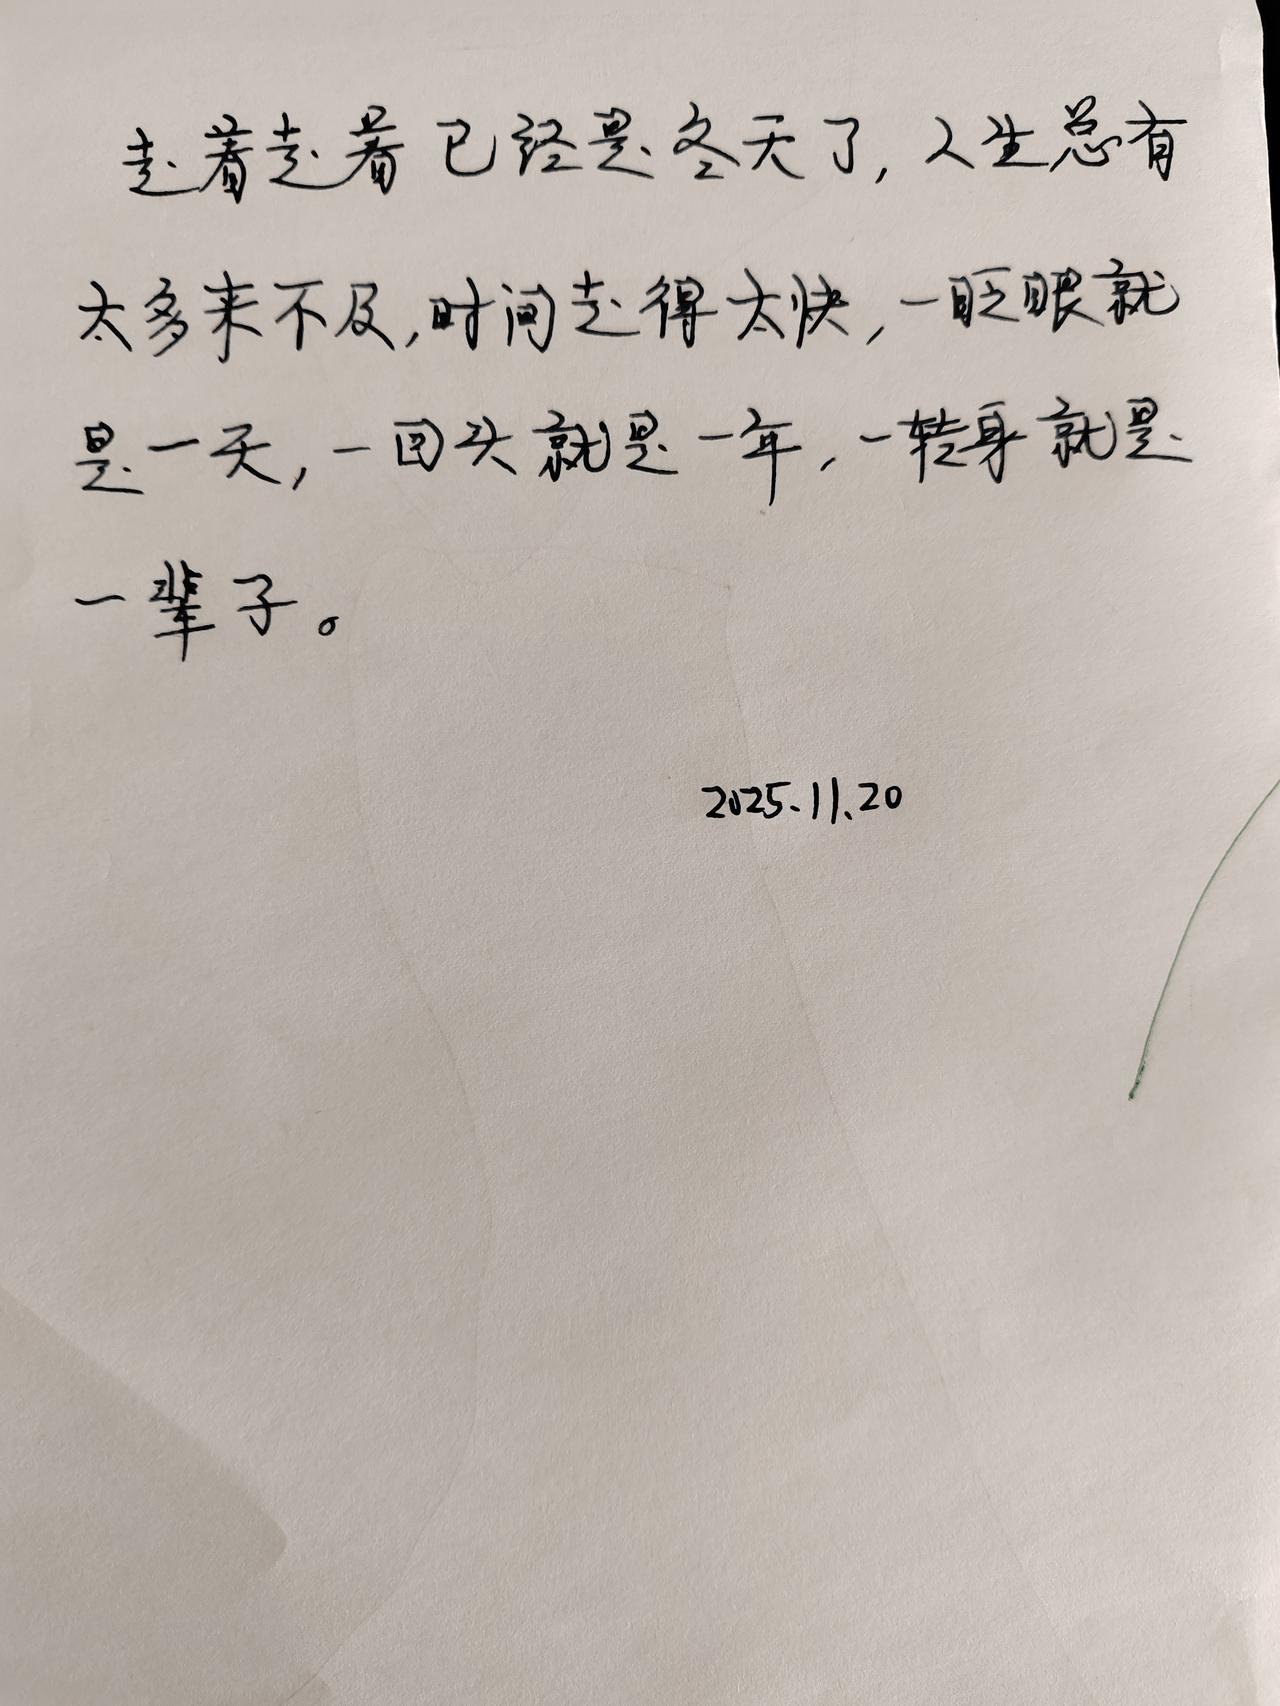 走着走着已经是冬天了,人生总有
太多来不及,时间走得太快,一眨眼就
是一天,一回头就是一年,一转身就是
一辈子。
2025.11.20